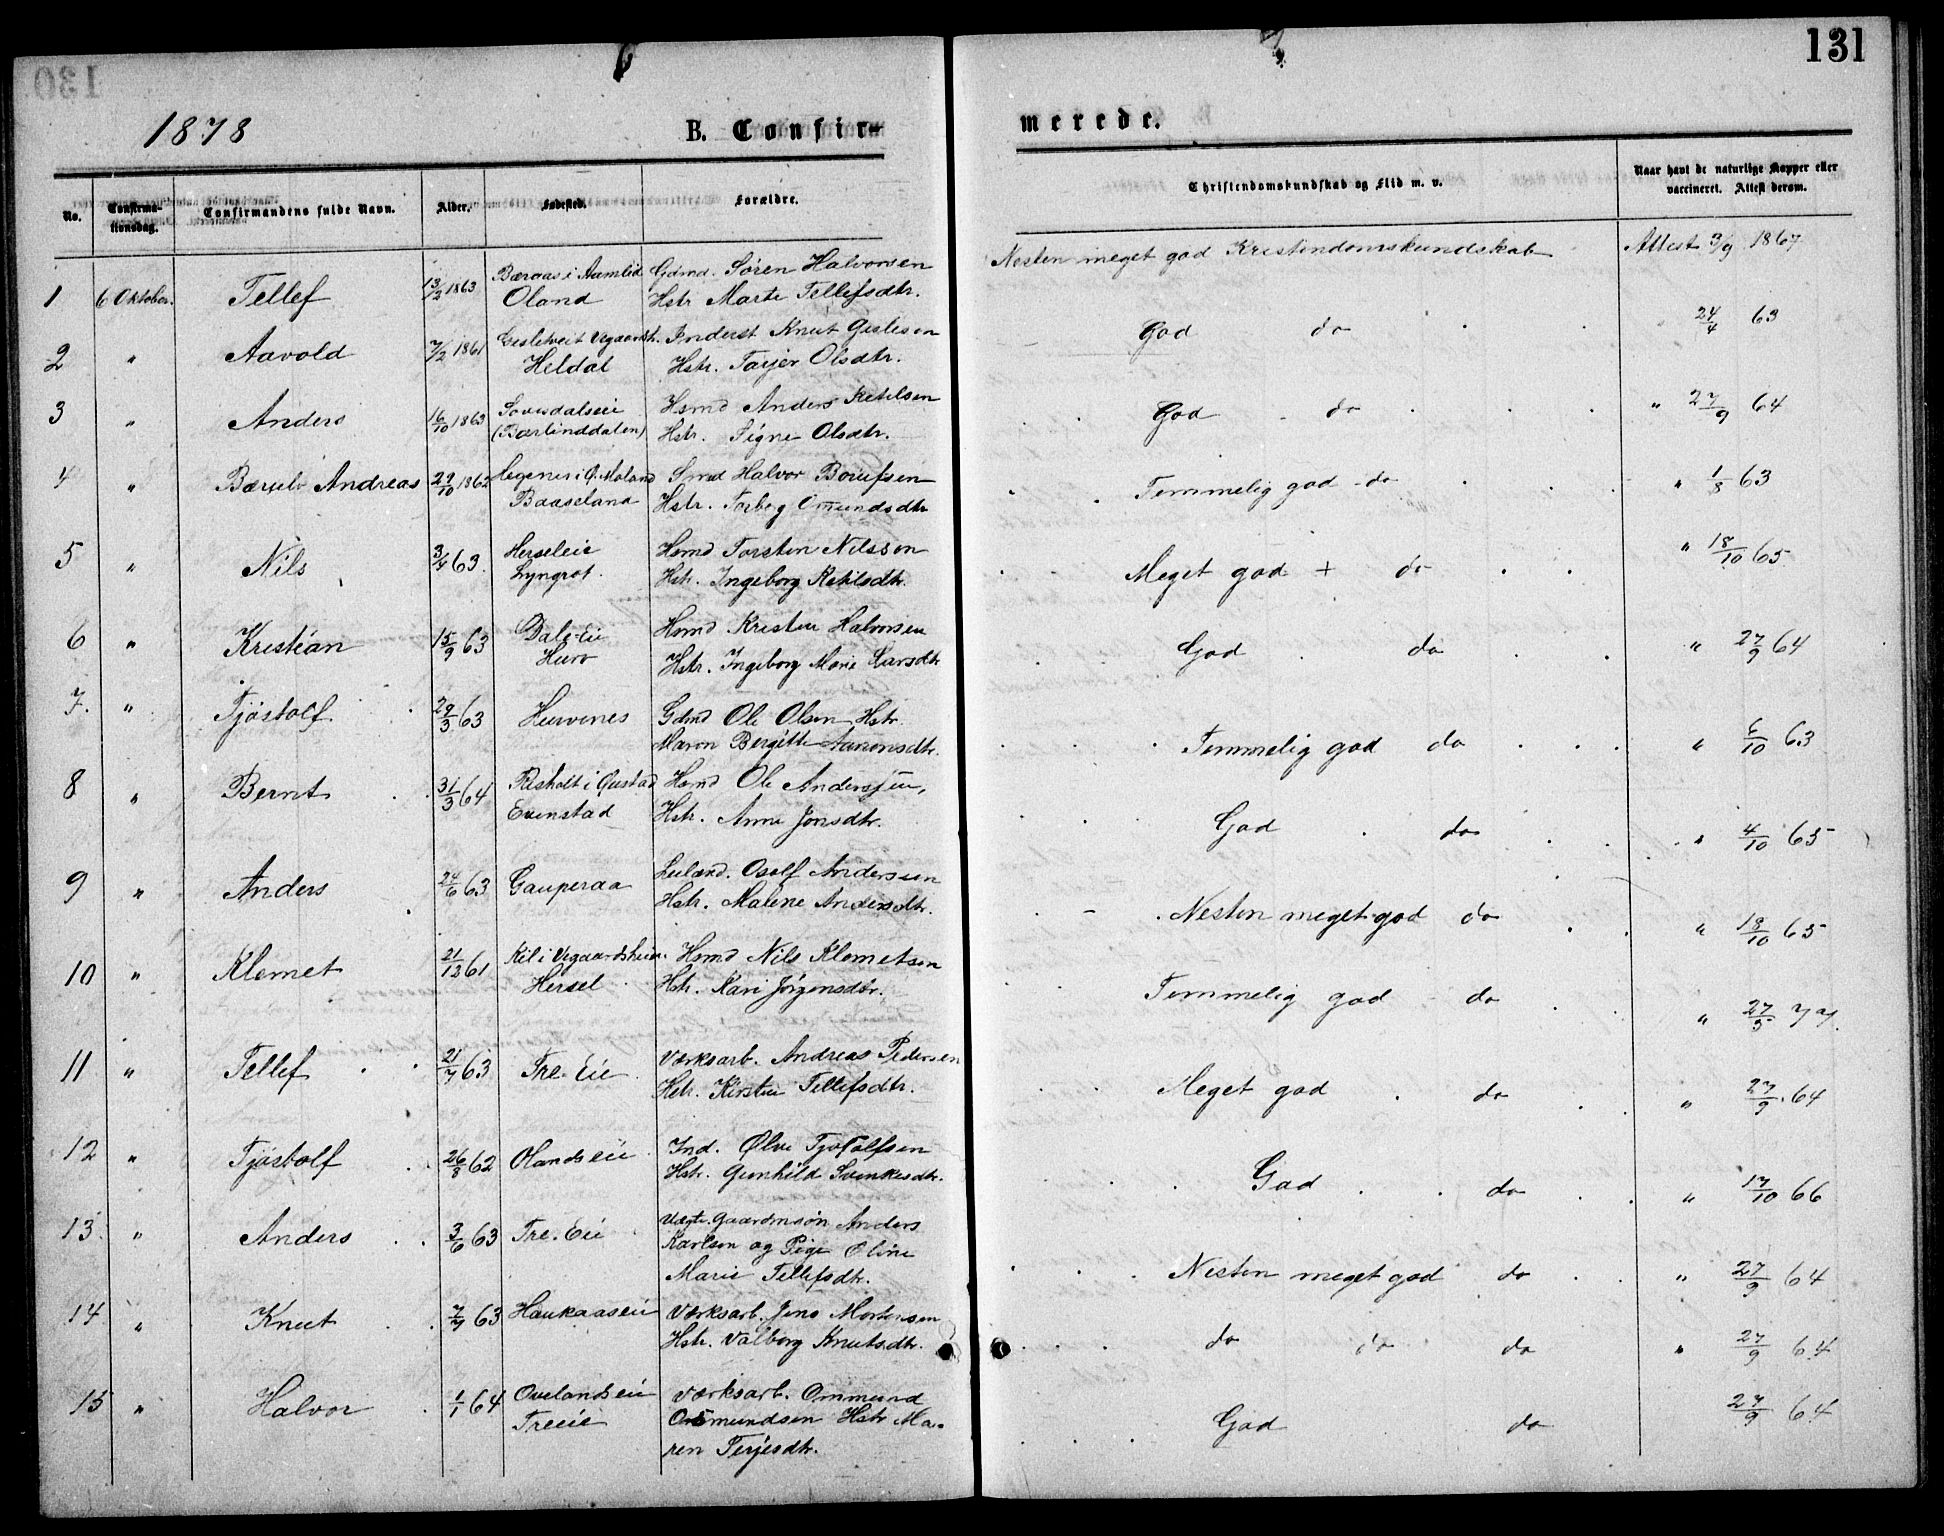 131
1878 B. Confir-
merede.
No. Confirma-
tionsdag. Confirmandens fulde Navn. Alder. Fødested. Forældre. Christendomskundskab og Flid m. v. Naar havt de naturlige Kopper eller
vaccineret. Attest derom.
1 6 Oktober. Tellef 13/2 1863 i Aamlid Gdmd. Søren Halvorsen Nesten meget god Kristendomskundskab Attest 3/9 1867
Oland Hstr Marte Tellefsdtr.
2 " Aavold 7/2 1861 Vegaardsh. Knut Gislesen God do " 24/4 63
Heldal Hstr. Tarjer Olsdtr.
3 " Anders 16/10 1863 Hsmd Anders Ketilsen God do " 27/9 64
Hstr. Signe Olsdtr.
4 " Andreas 29/10 1862 Halvor Temmelig god do " 1/8 63
Baaseland Hstr. Torbeg Omundsdtr
5 " Nils 3/4 63. Herseleie Hsmd Torsten Nilssen Meget god + do " 18/10 65
Lyngrot. Hstr. Ingeborg Ketilsdtr.
6 " Kristian 15/9 63 Dale-Eie Hsmd Kristen Halvorsen God do " 27/9 64
Hstr. Ingeborg Marie Larsdtr
7. " Tjøstolf 29/3 63 Gdmd Ole Olsen Hstr. Temmelig god do " 6/10 63
Maren Bergitte Aanonsdtr.
8 " Bernt 31/3 64 Risholt i Hsmd Ole Andersen, God do " 4/10 65
Evenstad Hstr. Anne Jonsdtr.
9 " Anders 24/6 63 Gauperaa Leiland. Osolf Andersen Nesten meget god do " 18/10 65
Hstr. Malene Andersdtr.
10 " Klemet 21/12 61 Kil i Vegaardsheien Hsmd Nils Klemetsen Temmelig god do " 27/5
Hersel Hstr. Kari Jørgensdtr.
11 " Tellef 21/7 63 Tre-Eie Værksarb. Andreas Pedersen Meget god do " 27/9 64
Hstr. Kirsten Tellefsdtr.
12 " Tjøstolf 26/8 62 Olandseie Ind. Ølve Tjøstolfsen God do " 17/10 66
Hstr. Gunhild Svenkesdtr.
13. " Anders 3/6 63 Tre-Eie Ugte. Gaardmsøn Anders Nesten meget god do " 27/9 64
Karlsen og Pige Oline
Marie Tellefsdtr.
14 " Knut 7/7 63 Haukaaseie Værksarb. Jens Mortensen do do do " 27/9 64
Hstr. Valborg Knutsdtr.
15 " Halvor 1/1 64 Ovelandseie Værksarb. Ommund God do 27/9 64
Treeie Osmundsen Hstr Ma-
ren Terjesdtr.